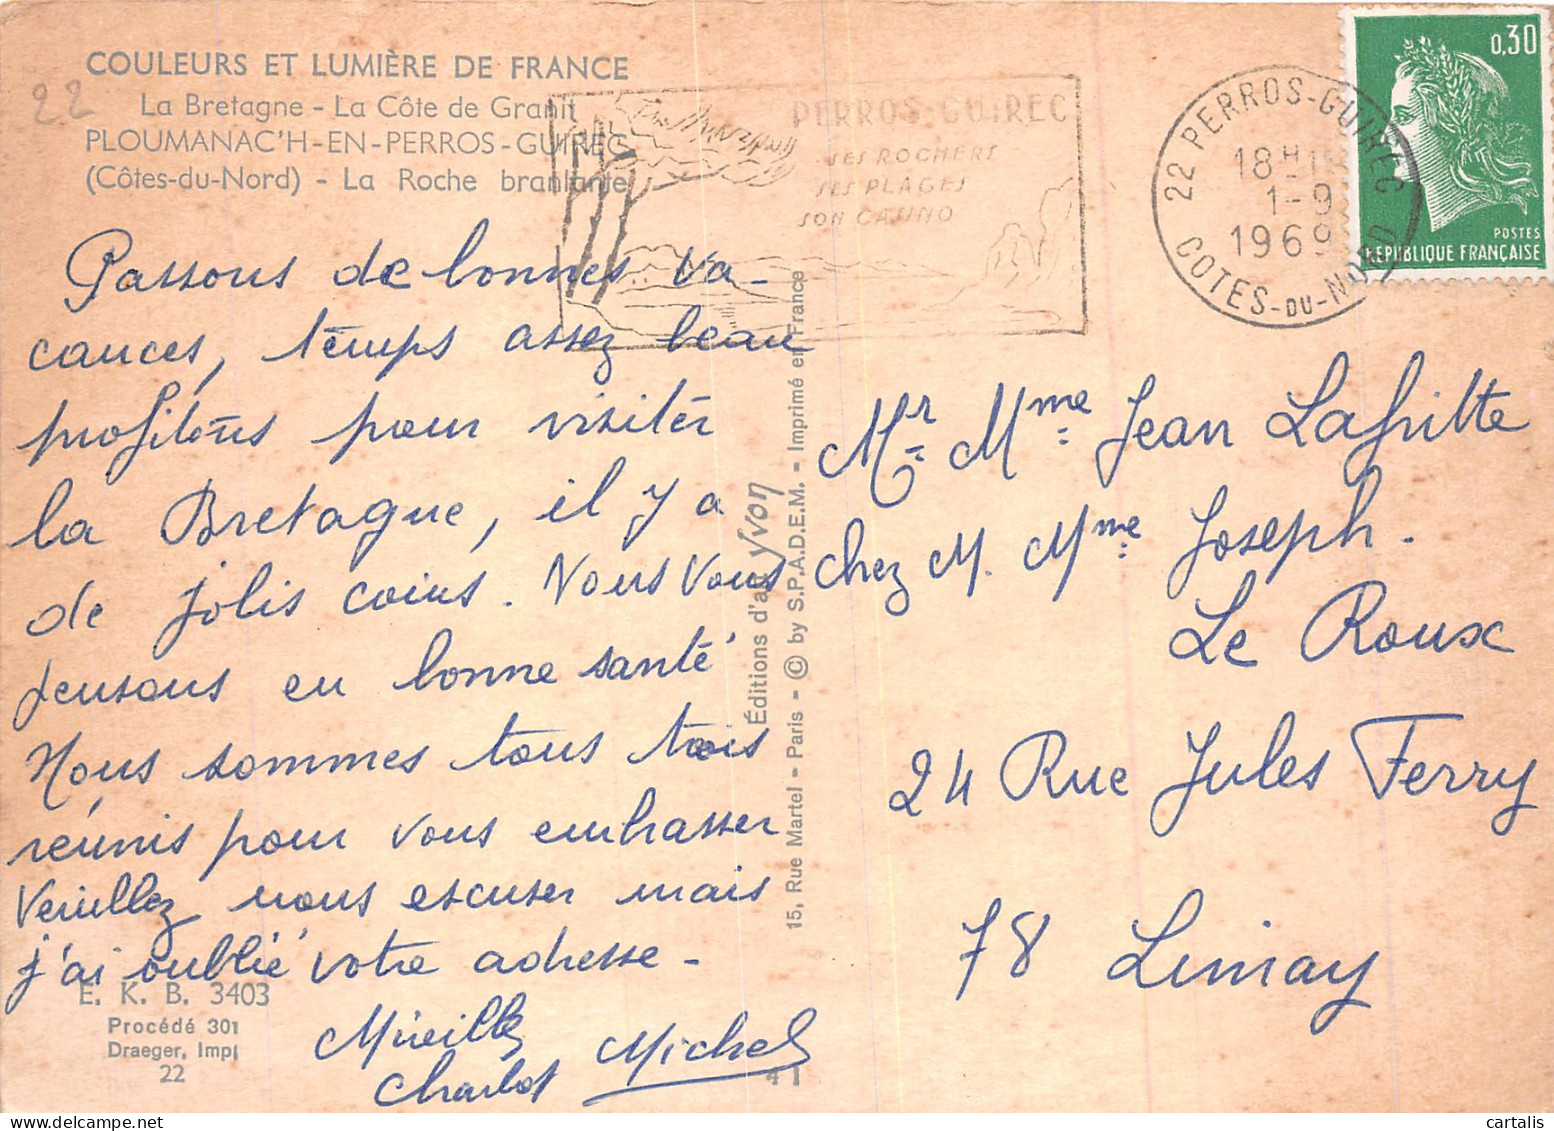 22
COULEURS ET LUMIÈRE DE FRANCE
La Bretagne - La Côte de Granit
PLOUMANAC'H-EN-PERROS-GUIREC
(Côtes-du-Nord) - La Roche branlante
PERROS-GUIREC
SES ROCHERS
SES PLAGES
SON CASINO
22 PERROS-GUIREC
18H15
1-9
1969
COTES-DU-NORD
0,30
POSTES
REPUBLIQUE FRANÇAISE
Passons de bonnes va-
cances, temps assez beau
profitons pour visiter
la Bretagne, il y a
de jolis coins. Nous vous
pensons en bonne santé
Nous sommes tous trois
réunis pour vous embrasser
Veuillez nous escuser mais
j'ai oublié votre adresse -
Mireille
Charlot Michel
E. K. B. 3403
Procédé 301
Draeger, Imp
22
4 1
Éditions d'art Yvon
15, Rue Martel - Paris - © by S.P.A.D.E.M. - Imprimé en France
Mr Mme Jean Lafitte
chez M. Mme Joseph.
Le Roux
24 Rue Jules Ferry
78 Limay
cartalis